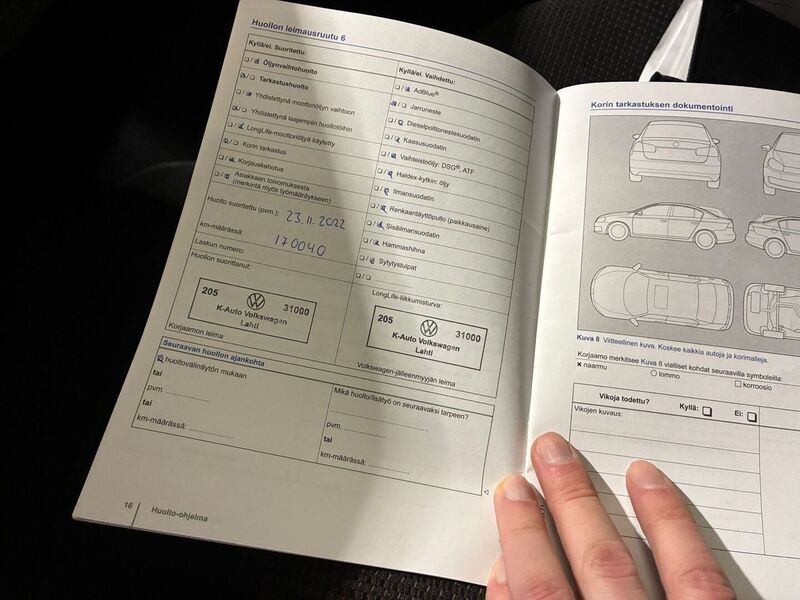 Huollon leimausruutu 6
Kyllä/ei. Suoritettu:
Öljynvaihtohuolto
Tarkastushuolto
Yhdistettynä moottoriöljyn vaihtoon
Yhdistettynä laajempiin huoltotöihin
LongLife-moottoriöljyä käytetty
Korin tarkastus
Korjauskehotus
Asiakkaan toivomuksesta
(merkintä myös työmääräykseen)
Huolto suoritettu (pvm.): 23.11.2022
km-määrässä: 170040
Laskun numero:
Huollon suorittanut:
205 31000
K-Auto Volkswagen
Lahti
Korjaamon leima
Kyllä/ei. Vaihdettu:
AdBlue®
Jarruneste
Dieselpolttonestesuodatin
Kaasusuodatin
Vaihteistoöljy: DSG®, ATF
Haldex-kytkin: öljy
Ilmansuodatin
Renkaantäyttöpullo (paikkausaine)
Sisäilmansuodatin
Hammashihna
Sytytystulpat
LongLife-liikkumisturva:
205 31000
K-Auto Volkswagen
Lahti
Volkswagen-jälleenmyyjän leima
Seuraavan huollon ajankohta
huoltovälinäytön mukaan
tai
pvm.
tai
km-määrässä:
Mikä huolto/lisätyö on seuraavaksi tarpeen?
pvm.
tai
km-määrässä:
16 Huolto-ohjelma
Korin tarkastuksen dokumentointi
Kuva 8 Viitteellinen kuva. Koskee kaikkia autoja ja korimalleja.
Korjaamo merkitsee Kuva 8 vialliset kohdat seuraavilla symboleilla:
naarmu lommo korroosio
Vikoja todettu? Kyllä: Ei:
Vikojen kuvaus: